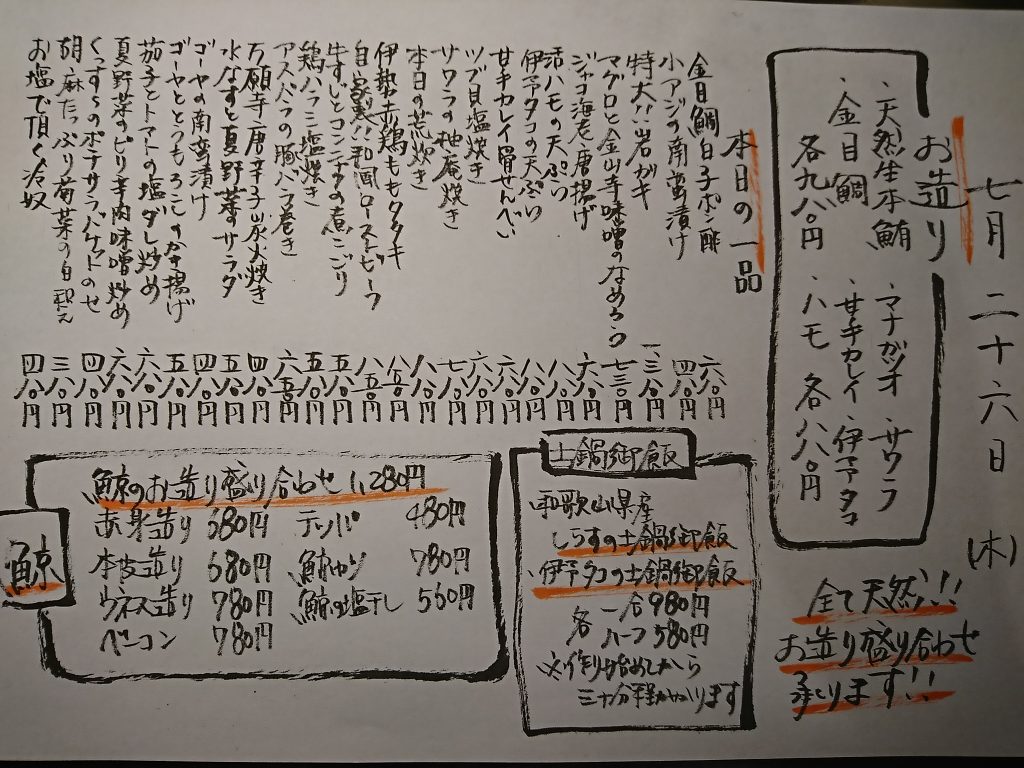 七月二十六日(木)
お造り
・天然生本鮪 ・マナガツオ ・サワラ
・金目鯛 ・甘手カレイ ・伊予タコ
各九八〇円 ・ハモ 各八八〇円
全て天然!!!
お造り盛り合わせ
承ります!!
本日の一品
金目鯛白子ポン酢 六八〇円
小アジの南蛮漬け 四八〇円
特大!!岩ガキ
マグロと金山寺味噌のなめろう 七三〇円
ジャコ海老唐揚げ 六八〇円
活ハモの天ぷら 八八〇円
伊予タコの天ぷら 八八〇円
甘手カレイ骨せんべい 六八〇円
ツブ貝塩焼き 六八〇円
サワラの柚庵焼き 七八〇円
本日の荒炊き 八八〇円
伊勢赤鶏ももタタキ 八五〇円
自家製!!和風ローストビーフ 八五〇円
牛すじとコンニャクの煮こごり 五八〇円
鶏ハラミ塩焼き 五八〇円
アスパラの豚バラ巻き 六五〇円
万願寺唐辛子炭火焼き 四八〇円
水なすと夏野菜サラダ 五八〇円
ゴーヤの南蛮漬け 四八〇円
ゴーヤととうもろこしのかき揚げ 五八〇円
茄子とトマトの塩ダレ炒め 六八〇円
夏野菜のピリ辛肉味噌炒め 六八〇円
くんすのポテサラバケットのせ 四八〇円
胡麻たっぷり菊菜の白和え 三八〇円
お塩で頂く冷奴 四八〇円
土鍋御飯
・和歌山県産
しらすの土鍋御飯
・伊予タコの土鍋御飯
各 一合980円
ハーフ580円
※作り始めてから
三十分程かかります
鯨
鯨のお造り盛り合わせ 1,280円
赤身造り 680円 テッパ 480円
本皮造り 680円 鯨カツ 780円
ウネス造り 780円 鯨の塩干し 560円
ベーコン 780円